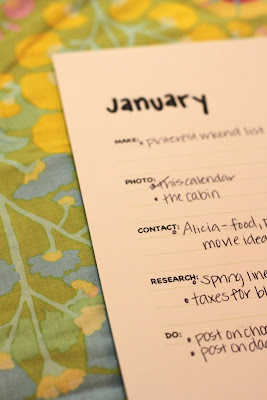 January
MAKE: • pinterest wkend list
PHOTO: • this calendar
• the cabin
CONTACT: • Alicia - food,
movie idea
RESEARCH: • spring line
• taxes for bl
DO: • post on cho
• post on da